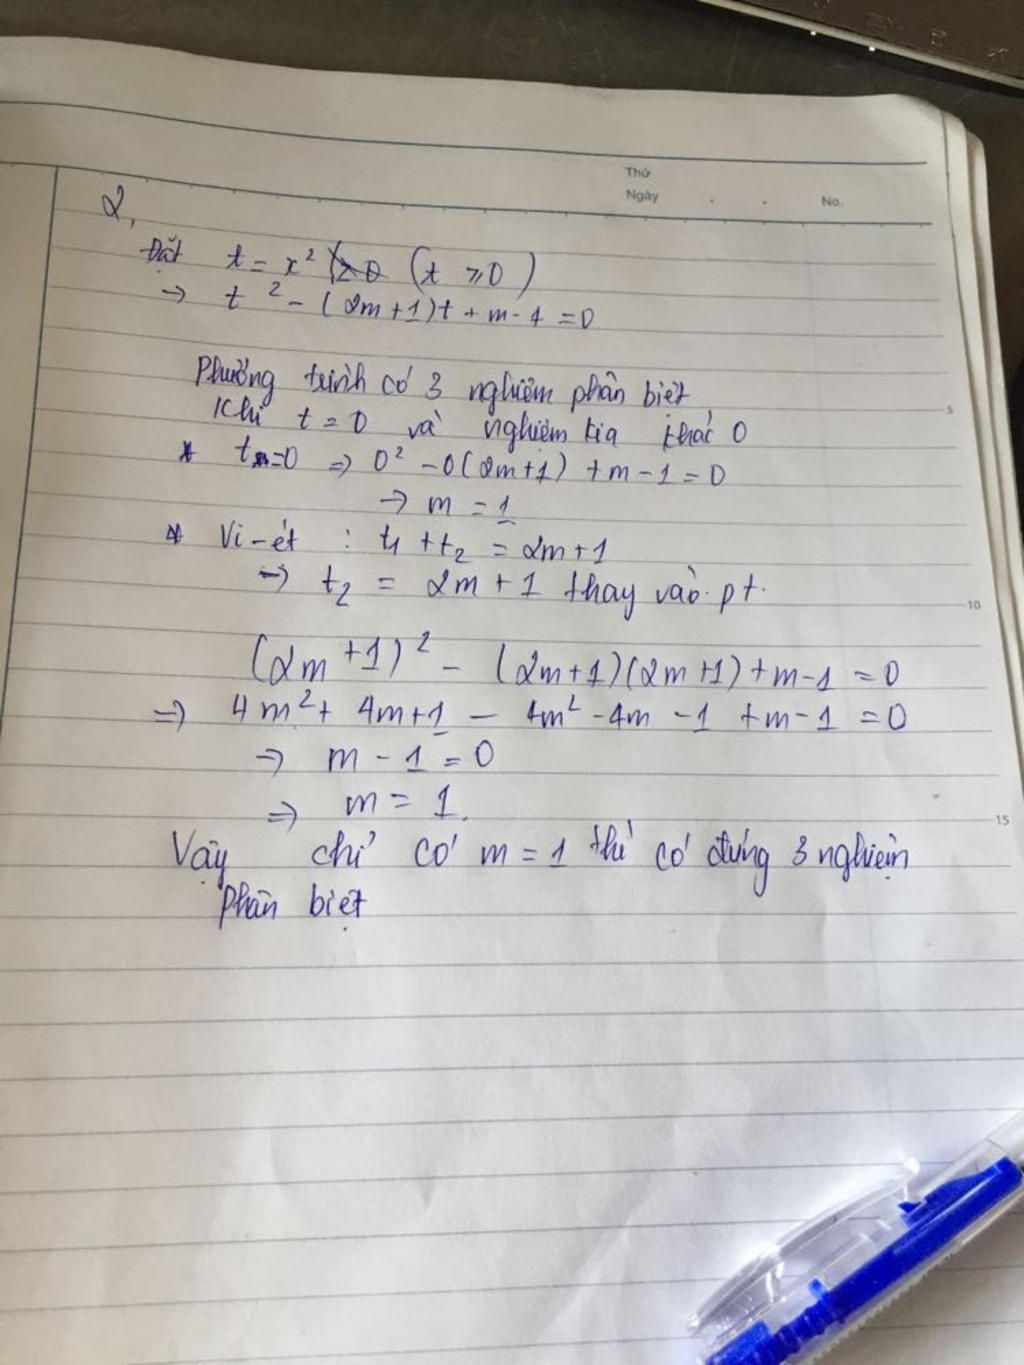 Thứ
Ngày . . No.
2,
Đặt t = x² (t ≥ 0)
→ t² - (2m+1)t + m - 1 = 0
Phương trình có 3 nghiệm phân biệt
5
Khi t = 0 và nghiệm kia khác 0
* t = 0 ⇒ 0² - 0(2m+1) + m - 1 = 0
→ m = 1
* Vi-ét : t₁ + t₂ = 2m+1
→ t₂ = 2m + 1 thay vào pt.
10
(2m +1)² - (2m+1)(2m+1) + m-1 = 0
⇒ 4m² + 4m+1 - 4m² - 4m - 1 + m - 1 = 0
→ m - 1 = 0
⇒ m = 1.
15
Vậy chỉ có m = 1 thì có đúng 3 nghiệm
phân biệt